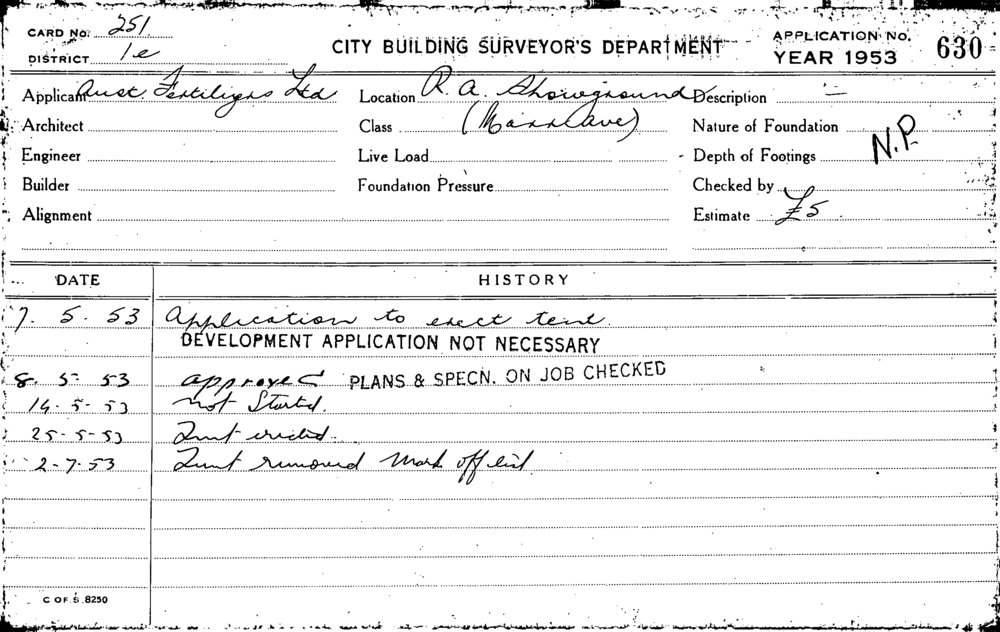 CARD No. 251
DISTRICT 1e
CITY BUILDING SURVEYOR'S DEPARTMENT
APPLICATION No. 630
YEAR 1953
Applicant Aust. Fertilizers Ltd
Location R. A. Showground
Description —
Architect
Class (Mann Ave)
Nature of Foundation
N.P.
Engineer
Live Load
Depth of Footings
Builder
Foundation Pressure
Checked by
Alignment
Estimate £5
DATE HISTORY
7. 5. 53 Application to erect tent.
DEVELOPMENT APPLICATION NOT NECESSARY
8. 5. 53 approved PLANS & SPECN. ON JOB CHECKED
14. 5. 53 not Started.
25-5-53 Tent erected.
2-7-53 Tent removed Mark off list
C OF S. 8250